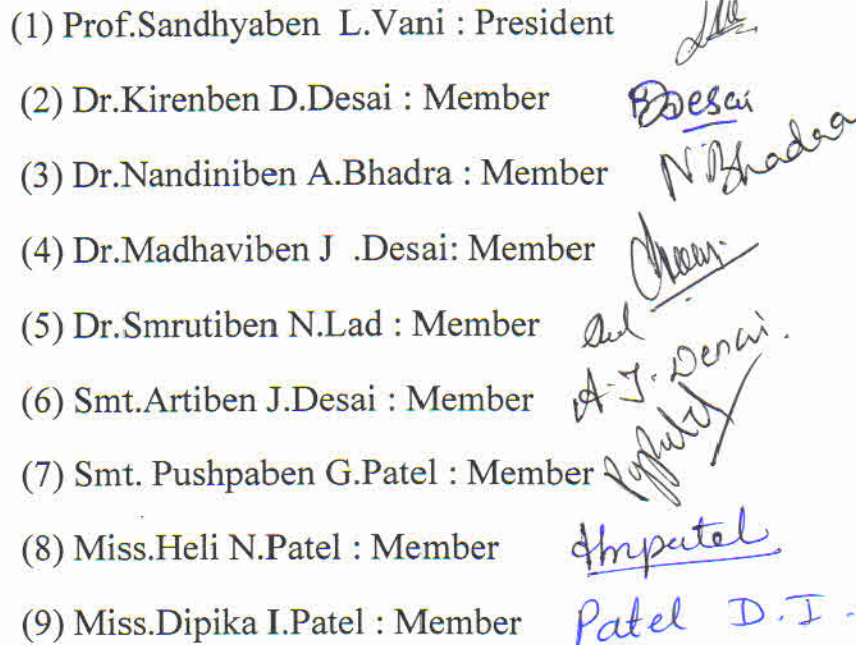 (1) Prof.Sandhyaben L.Vani : President
(2) Dr.Kirenben D.Desai : Member Desai
(3) Dr.Nandiniben A.Bhadra : Member N.Bhadra
(4) Dr.Madhaviben J .Desai: Member
(5) Dr.Smrutiben N.Lad : Member
(6) Smt.Artiben J.Desai : Member A.J. Desai.
(7) Smt. Pushpaben G.Patel : Member
(8) Miss.Heli N.Patel : Member
(9) Miss.Dipika I.Patel : Member Patel D.I.